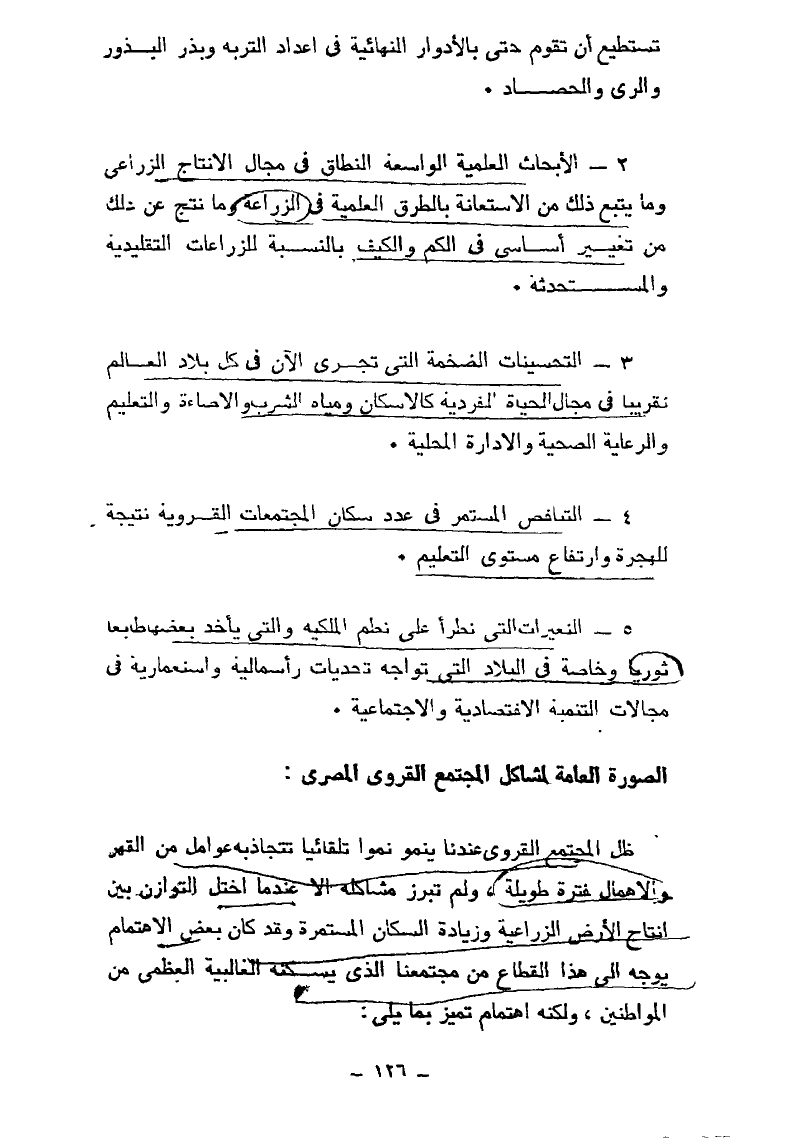 تستطيع أن تقوم حتى بالأدوار النهائية فى اعداد التربه وبذر البذور
والرى والحصاد ٠
٢ – الأبحاث العلمية الواسعة النطاق فى مجال الانتاج الزراعى
وما يتبع ذلك من الاستعانة بالطرق العلمية فى الزراعة وما نتج عن ذلك
من تغيير أساسى فى الكم والكيف بالنسبة للزراعات التقليدية
والمستحدثة ٠
٣ – التحسينات الضخمة التى تجرى الآن فى كل بلاد العالم
تقريبا فى مجال الحياة الفردية كالاسكان ومياه الشرب والاضاءة والتعليم
والرعاية الصحية والادارة المحلية ٠
٤ – التناقص المستمر فى عدد سكان المجتمعات القروية نتيجة
للهجرة وارتفاع مستوى التعليم ٠
٥ – التغيرات التى تطرأ على نظم الملكيه والتى يأخذ بعضها طابعا
ثوريا وخاصة فى البلاد التى تواجه تحديات رأسمالية واستعمارية فى
مجالات التنمية الاقتصادية والاجتماعية ٠
الصورة العامة لمشاكل المجتمع القروى المصرى :
ظل المجتمع القروى عندنا ينمو نموا تلقائيا تتجاذبه عوامل من القهر
والاهمال فترة طويلة ، ولم تبرز مشاكله الا عندما اختل التوازن بين
انتاج الأرض الزراعية وزيادة السكان المستمرة وقد كان بعض الاهتمام
يوجه الى هذا القطاع من مجتمعنا الذى يسكنه الغالبية العظمى من
المواطنين ، ولكنه اهتمام تميز بما يلى :
– ١٢٦ –